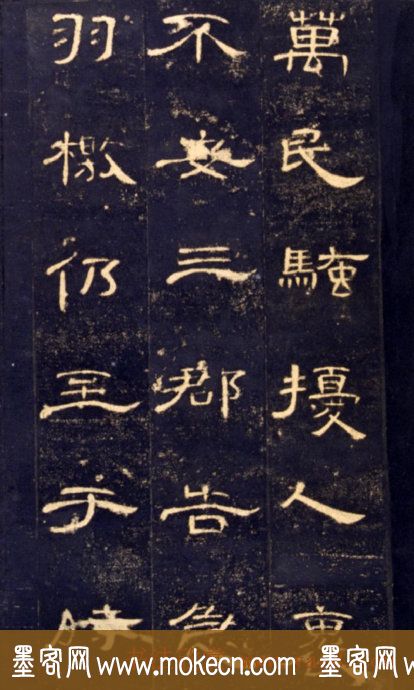 萬民騷擾人
不安三郡告急
羽檄仍至于時
墨客网 www.mokecn.com 墨客网